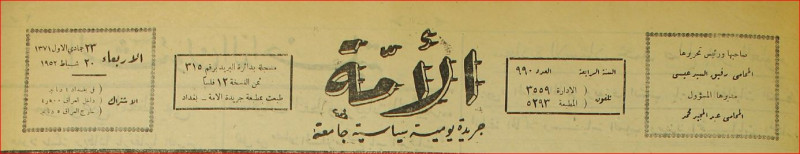 صاحبها ورئيس تحريرها
المحامي رفيق السيد عيسى
مديرها المسؤول
المحامي عبد المجيد محمد
السنة الرابعة العدد ٩٩٠
تلفون
الادارة ٣٥٥٩
المطبعة ٥٢٩٣
الأمّة
جريدة يومية سياسية جامعة
مسجلة بدائرة البريد برقم ٣١٥
ثمن النسخة ١٢ فلساً
طبعت بمطبعة جريدة الأمة - بغداد
الاربعاء
٢٣ جمادي الاول ١٣٧١
٢٠ شباط ١٩٥٢
الاشتراك
في بغداد
داخل العراق
خارج العراق